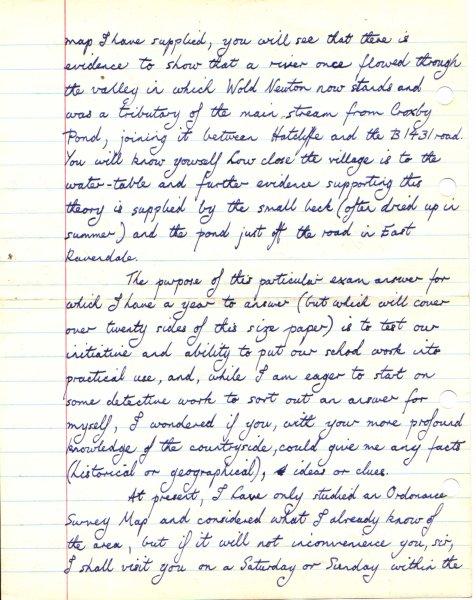 map I have supplied, you will see that there is
evidence to show that a river once flowed through
the valley in which Wold Newton now stands and
was a tributary of the main stream from Croxby
Pond, joining it between Hatcliffe and the B1431 road.
You will know yourself how close the village is to the
water-table and further evidence supporting this
theory is supplied by the small beck (often dried up in
summer) and the pond just off the road in East
Ravendale.
The purpose of this particular exam answer for
which I have a year to answer (but which will cover
over twenty sides of this size paper) is to test our
initiative and ability to put our school work into
practical use, and, while I am eager to start on
some detective work to sort out an answer for
myself, I wondered if you, with your more profound
knowledge of the countryside, could give me any facts
(historical or geographical), ideas or clues.
At present, I have only studied an Ordonance
Survey Map and considered what I already know of
the area, but if it will not inconvenience you, sir,
I shall visit you on a Saturday or Sunday within the